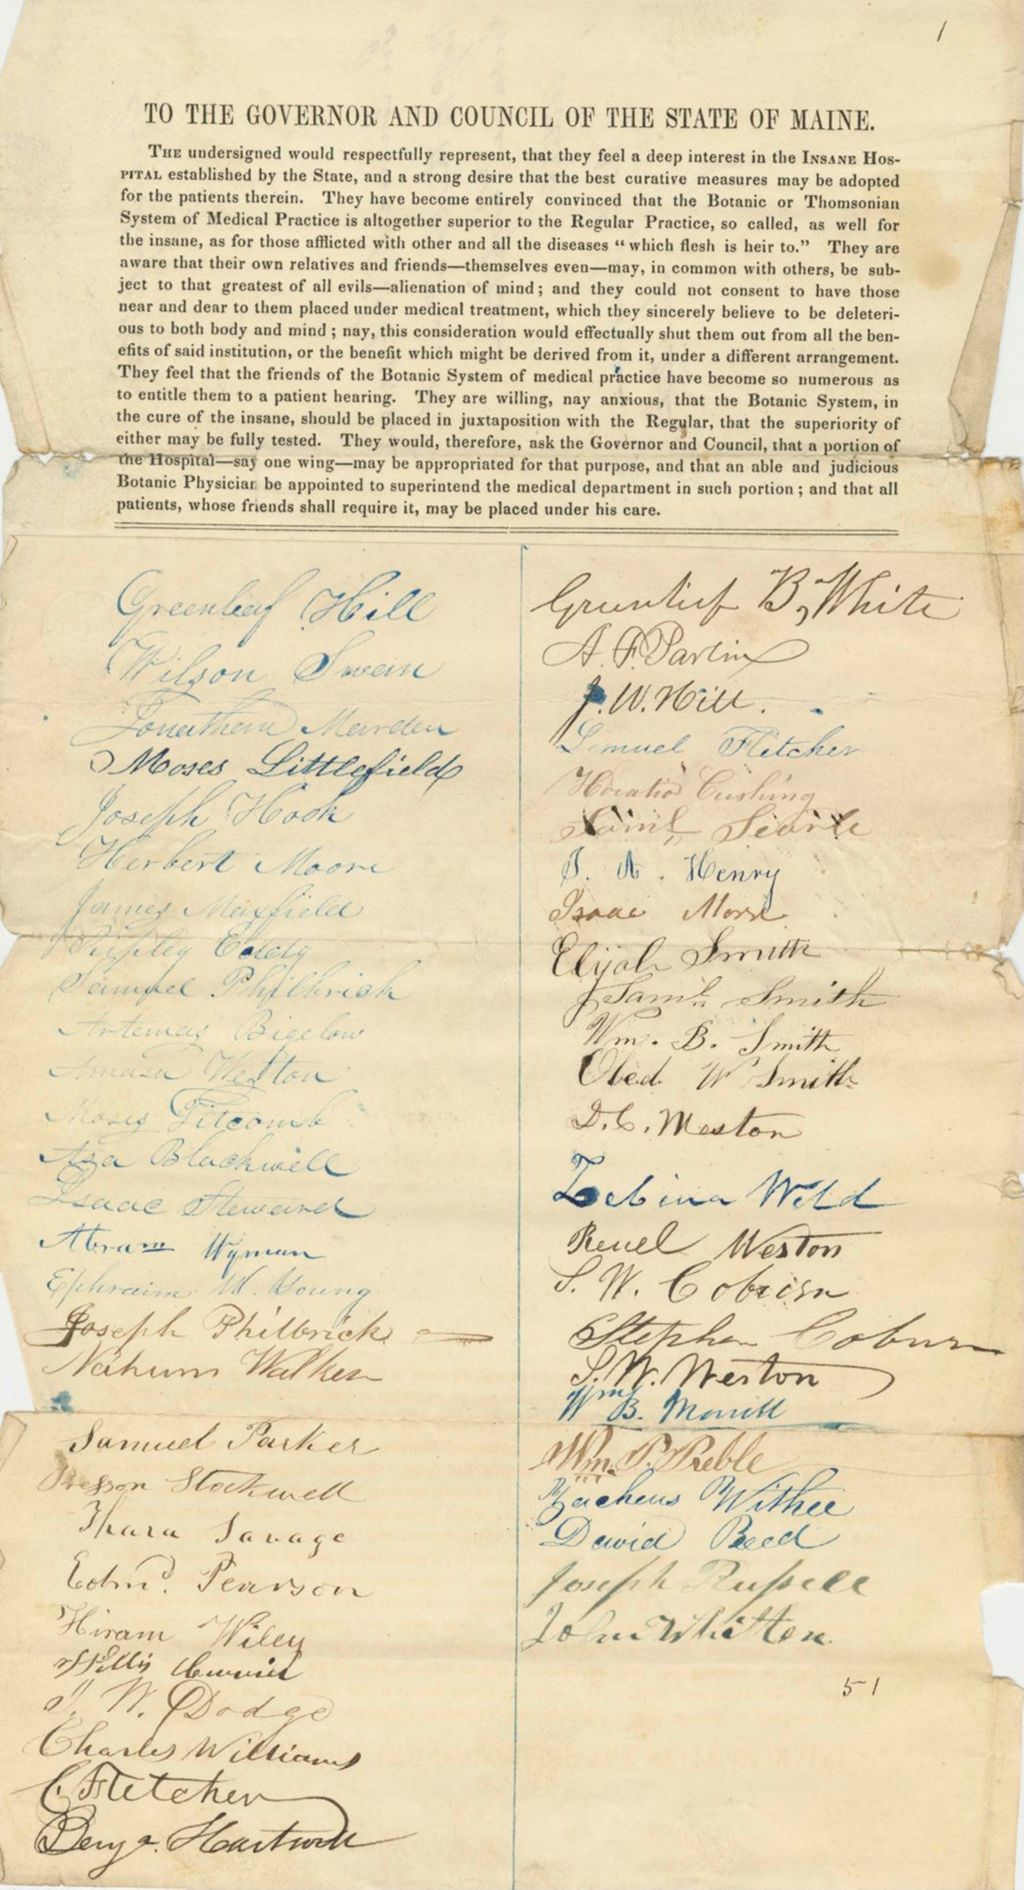 1
TO THE GOVERNOR AND COUNCIL OF THE STATE OF MAINE.
THE undersigned would respectfully represent, that they feel a deep interest in the INSANE HOS-
PITAL established by the State, and a strong desire that the best curative measures may be adopted
for the patients therein. They have become entirely convinced that the Botanic or Thomsonian
System of Medical Practice is altogether superior to the Regular Practice, so called, as well for
the insane, as for those afflicted with other and all the diseases "which flesh is heir to." They are
aware that their own relatives and friends—themselves even—may, in common with others, be sub-
ject to that greatest of all evils—alienation of mind; and they could not consent to have those
near and dear to them placed under medical treatment, which they sincerely believe to be deleteri-
ous to both body and mind; nay, this consideration would effectually shut them out from all the ben-
efits of said institution, or the benefit which might be derived from it, under a different arrangement.
They feel that the friends of the Botanic System of medical practice have become so numerous as
to entitle them to a patient hearing. They are willing, nay anxious, that the Botanic System, in
the cure of the insane, should be placed in juxtaposition with the Regular, that the superiority of
either may be fully tested. They would, therefore, ask the Governor and Council, that a portion of
the Hospital—say one wing—may be appropriated for that purpose, and that an able and judicious
Botanic Physician be appointed to superintend the medical department in such portion; and that all
patients, whose friends shall require it, may be placed under his care.
Greenleaf Hill
Wilson Swein
Jonathan Marden
Moses Littlefield
Joseph Hook
Herbert Moore
James Maxfield
Eddy
Samuel Philbrick
Artemas Bigelow
Amasa Weston
Moses Titcomb
Asa Blackwell
Isaac Steward
Abram Wyman
Ephraim W. Young
Joseph Philbrick
Nahum Walker
Samuel Parker
Stockwell
Savage
Edmd. Pearson
Hiram Wiley
Willis
W. Dodge
Charles Williams
C. Fletcher
Benja. Hartwell
Greenlief B. White
A. F. Parlin
J. W. Hill.
Lemuel Fletcher
Horatio Cushing
Saml Searle
J. A. Henry
Isaac Morse
Elijah Smith
Saml. Smith
Wm. B. Smith
Obed W Smith
D. C. Weston
Zebina Wild
Reuel Weston
S. W. Coburn
Stephen Coburn
S. W. Weston
Wm B. Morrill
Wm. P. Preble
Zacheus Withee
David Reed
Joseph Russell
John Whitten
51